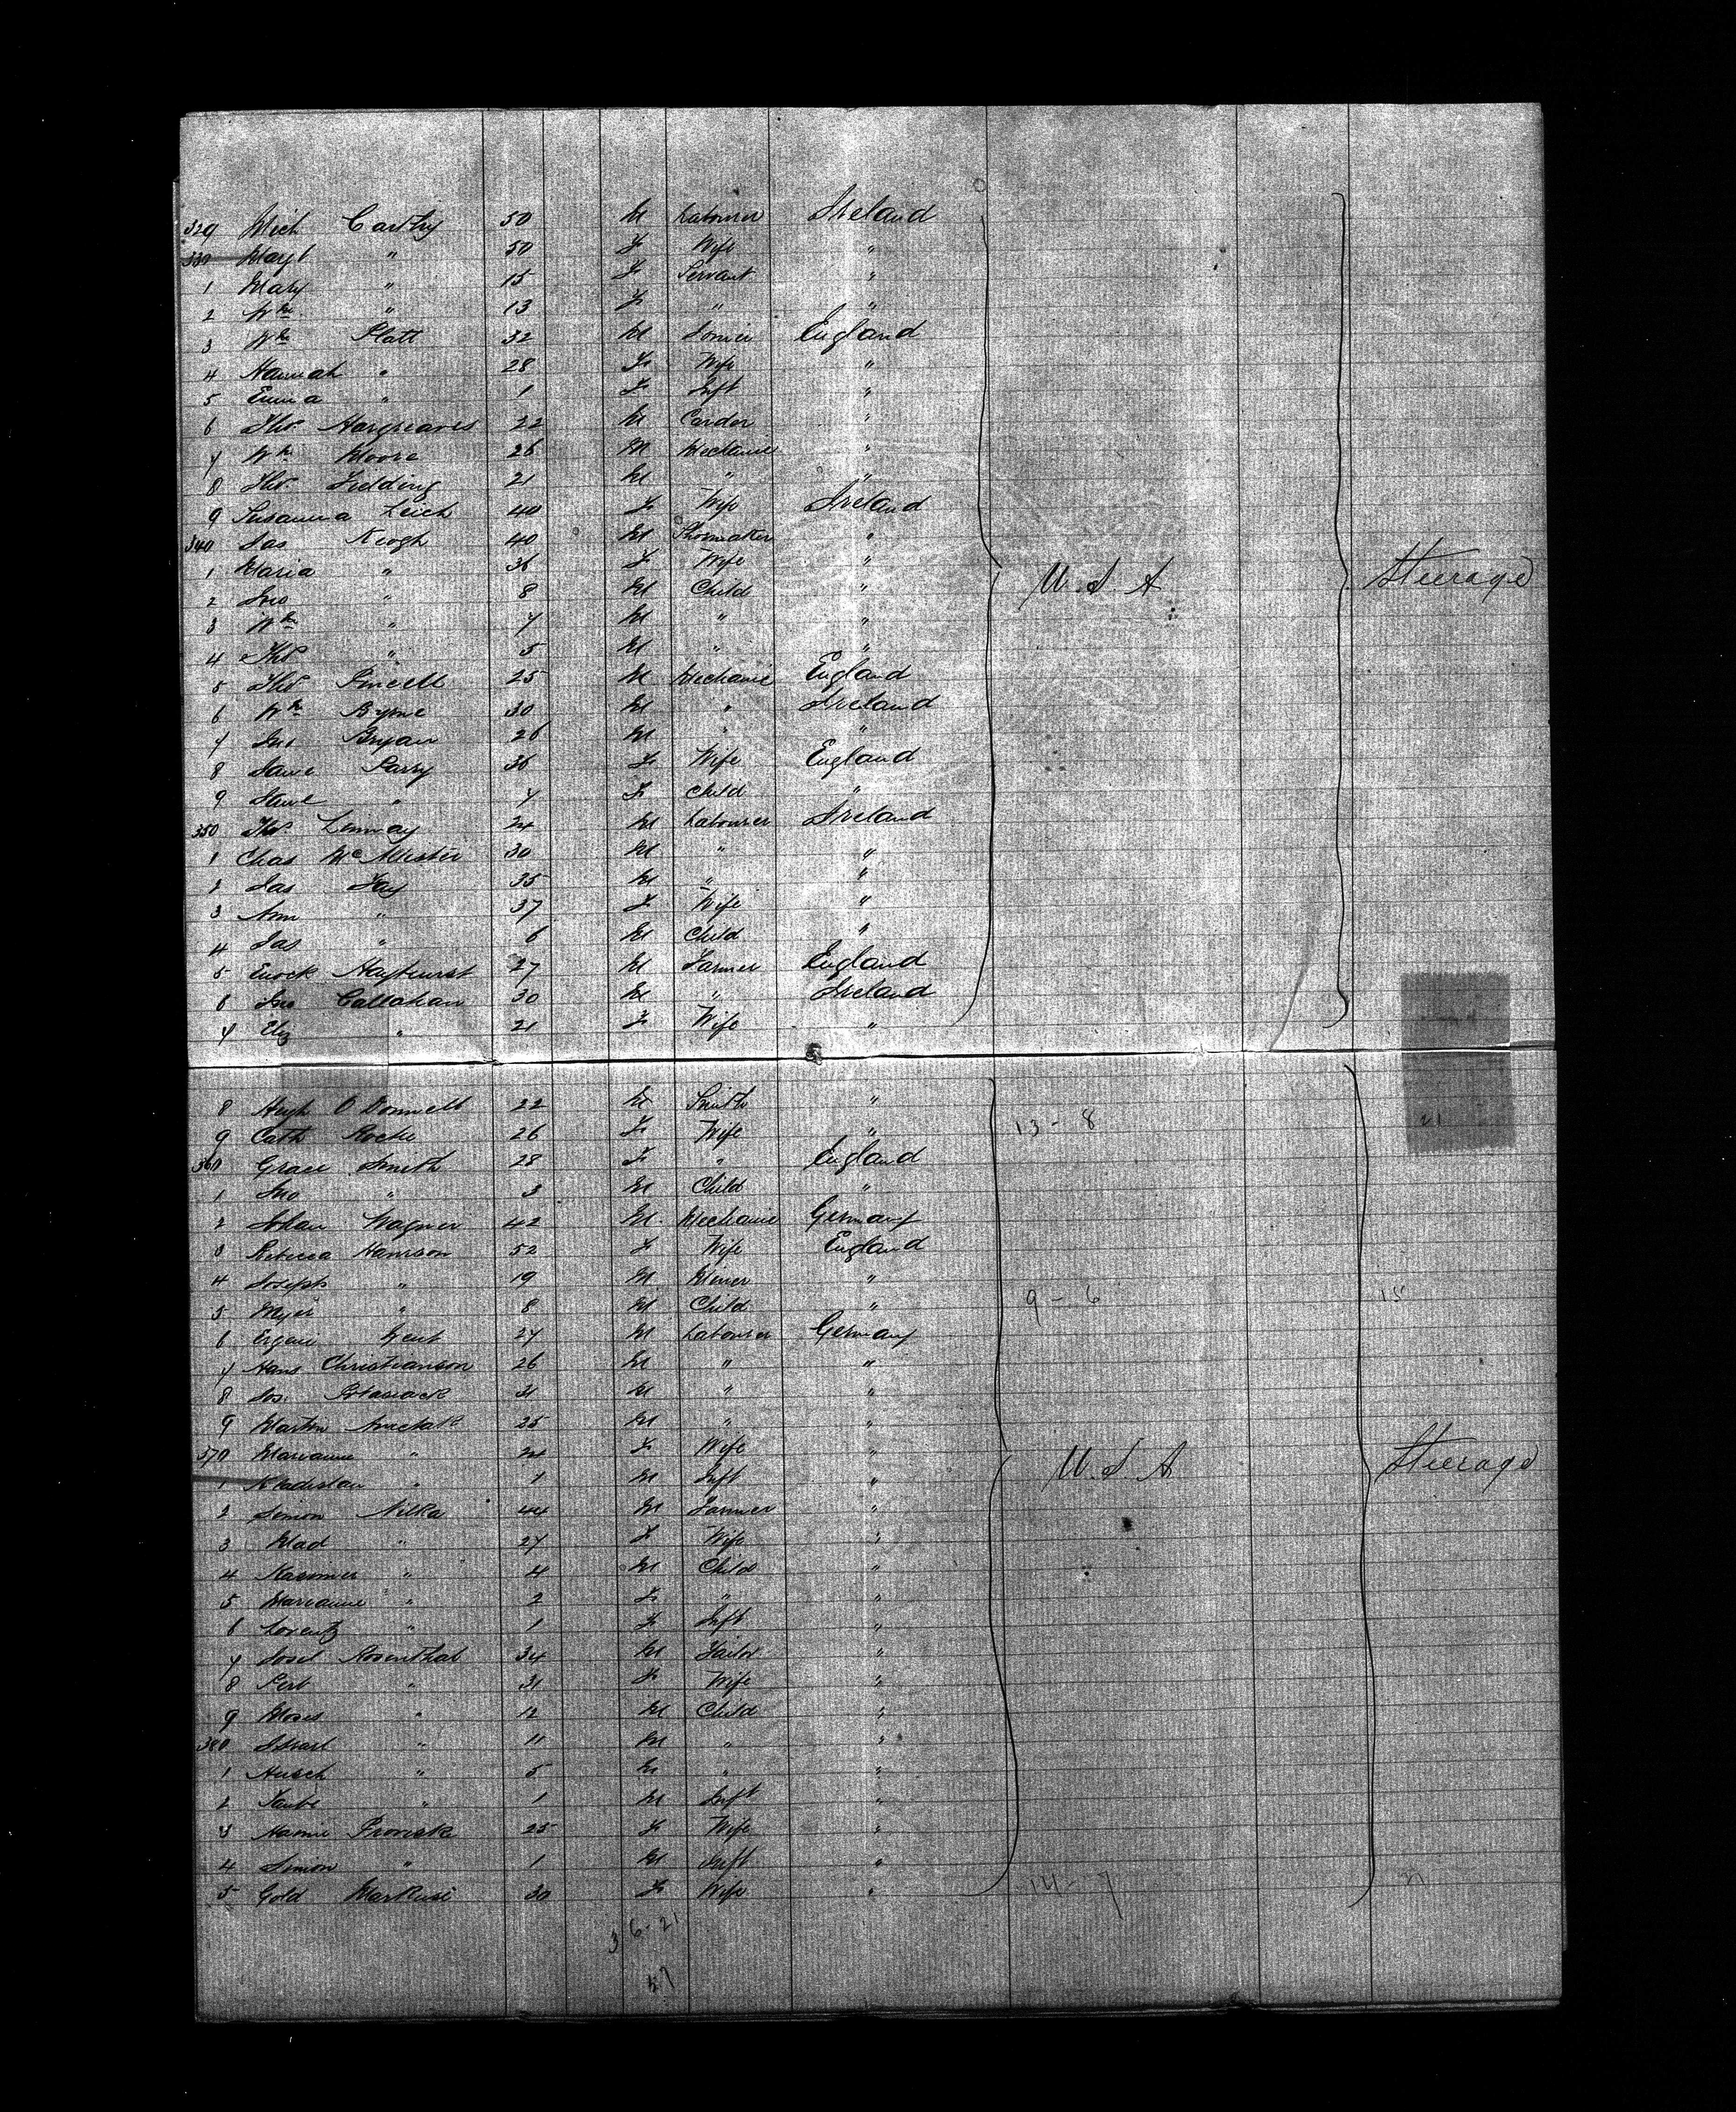 329 Mich Carthy 50 M Labourer Ireland
330 Margt " 50 F Wife "
1 Mary " 15 F Servant "
2 Wm " 13 F " "
3 Wm Platt 32 M England
4 Hannah " 28 F Wife "
5 Emma " 1 F Inft "
6 Thos Hargreaves 22 M Carder "
7 Wm Moore 26 M Mechanic "
8 Thos Fielding 21 M " "
9 Susanna Leich 40 F Wife Ireland
340 Jas Keogh 40 M Shoemaker "
1 Maria " 36 F Wife "
2 Jno " 8 M Child " U.S.A Steerage
3 Wm " 7 M " "
4 Thos " 5 M " "
5 Thos Purcell 25 M Mechanic England
6 Wm Byrne 30 M " Ireland
7 Jno Bryan 26 M " "
8 Jane Parry 36 F Wife England
9 Jane " 7 F Child "
350 Thos 24 M Labourer Ireland
1 Chas McAllister 30 M " "
2 Jas Fay 35 M " "
3 Ann " 37 F Wife "
4 Jas " 6 M Child "
5 Enock Hayhurst 27 M Farmer England
6 Jno Callahan 30 M " Ireland
7 Eliz " 21 F Wife "
8 Hugh O'Donnell 22 M Smith "
9 Cath Roche 26 F Wife " 13 - 8 21
360 Grace Smith 28 F " England
1 Jno " 3 M Child "
2 Johan Wagner 42 M Mechanic Germany
3 Rebecca Harrison 52 F Wife England
4 Joseph " 19 M Miner "
5 Meyer " 8 M Child " 9 - 6 15
6 27 M Labourer Germany
7 Hans Christianson 26 M " "
8 Jos. 31 M " "
9 Martin 25 M " "
370 Marianne " 24 F Wife " U.S.A Steerage
1 " 1 M Inft "
2 Simon Nilka 44 M Farmer "
3 Mad " 27 F Wife "
4 " 4 M Child "
5 Marianne " 2 F " "
6 Lorentz " 1 F Inft "
7 Josel Rosenthal 34 M Tailor "
8 " 31 F Wife "
9 Moses " 12 M Child "
380 " 11 M " "
1 " 5 M " "
2 Taube " 1 M Inft "
3 25 F Wife "
4 Simon " 1 M Inft "
5 Gold 30 F Wife " 14 - 7 21
36-21
57